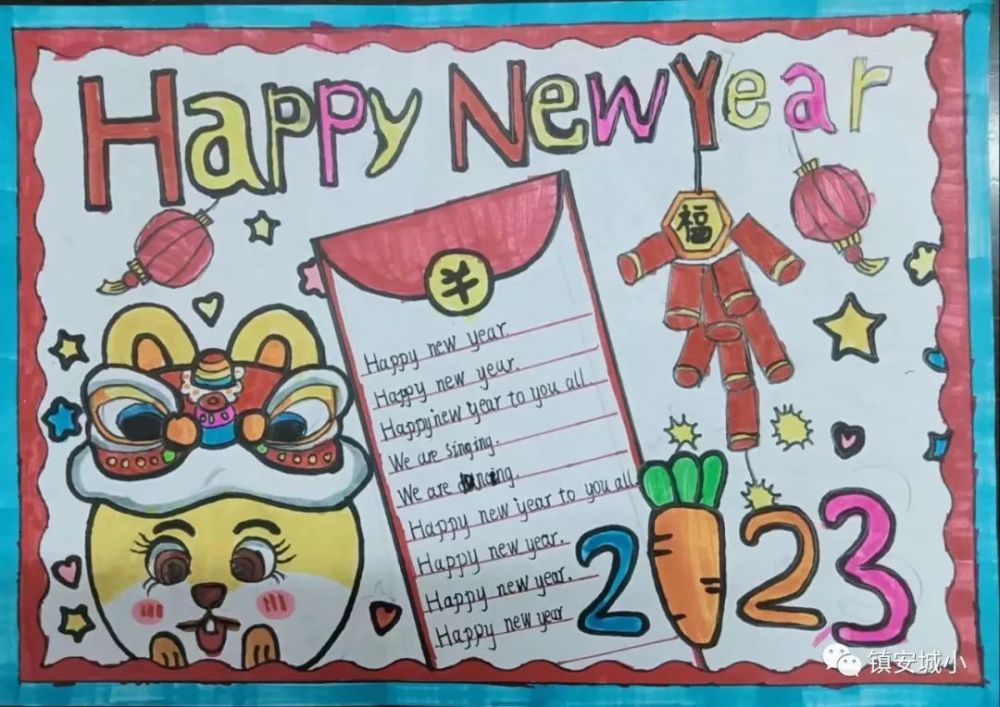 Happy New Year
福
Happy new year.
Happy new year.
Happy new year to you all.
We are singing.
We are dancing.
Happy new year to you all.
Happy new year.
Happy new year.
Happy new year
2023
镇安城小